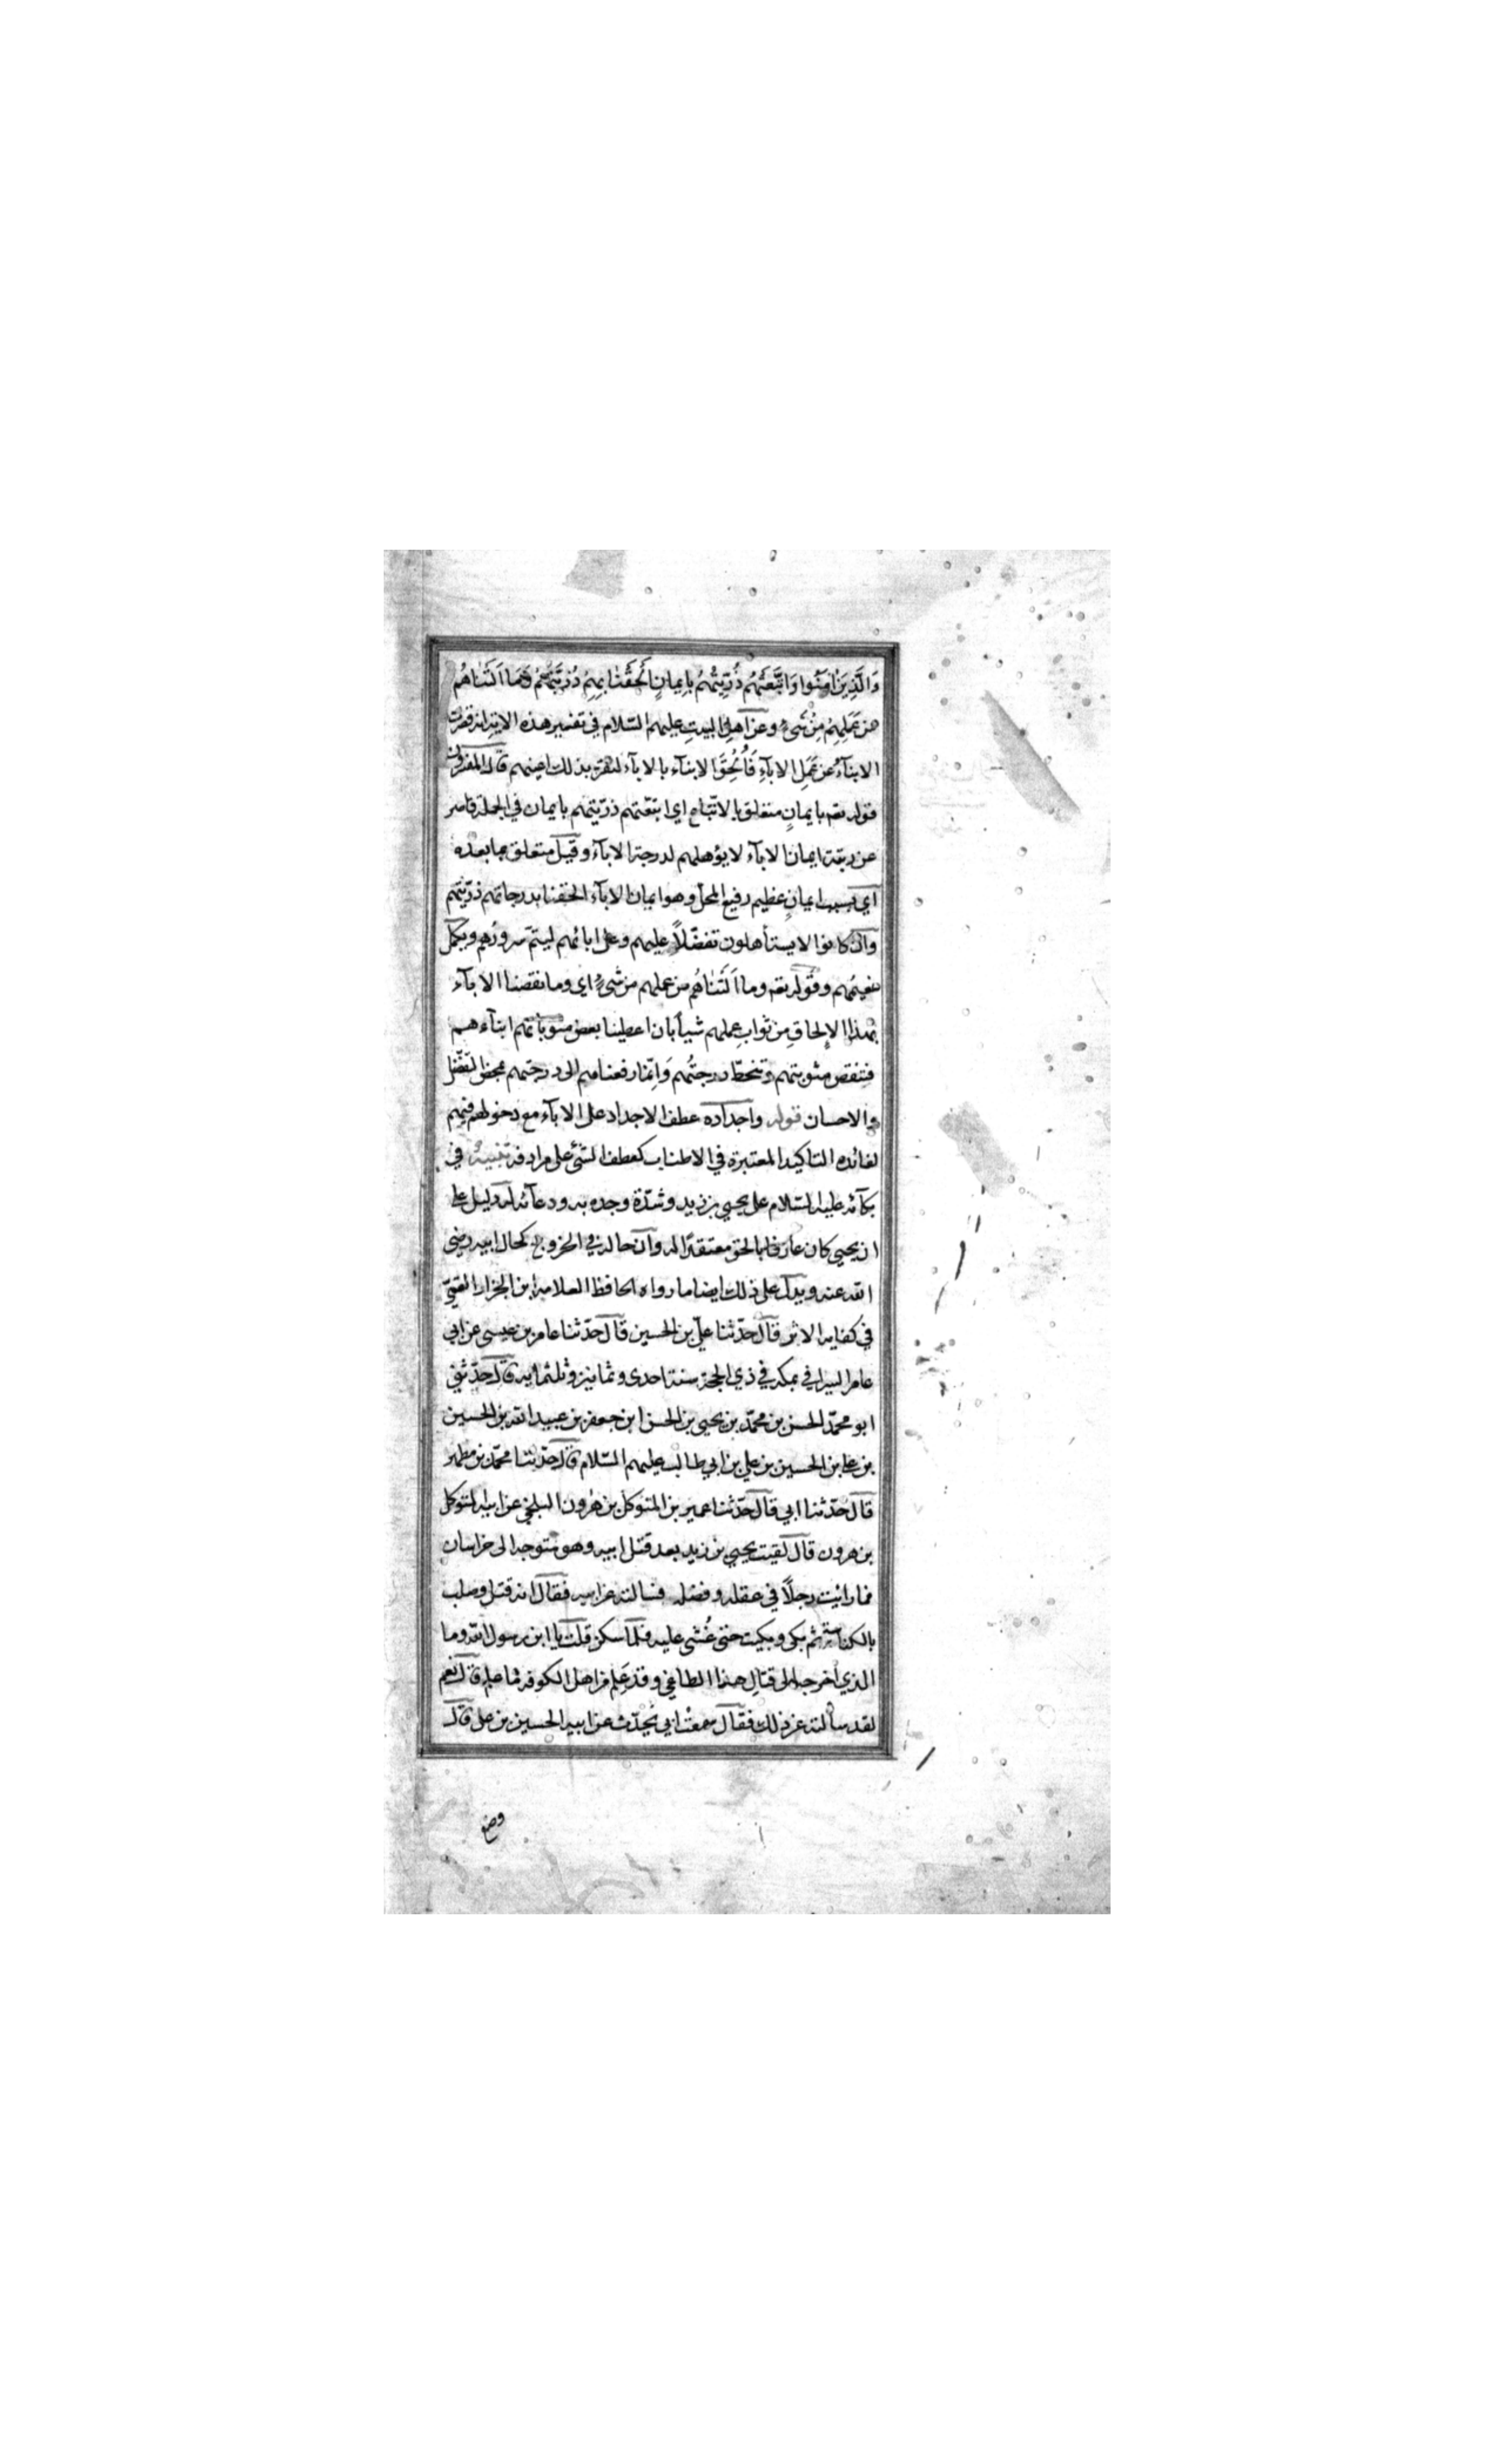 وَالَّذِينَ اٰمَنُوا وَاتَّبَعَتْهُمْ ذُرِّيَّتُهُمْ بِاِيمانٍ اَلْحَقْنٰا بِهِمْ ذُرِّيَّتَهُمْ وَمَا اَلَتْنٰاهُمْ
من عَمَلِهِمْ مِنْ شَىءٍ وعن اهلِ البيتِ عليهم السّلام في تفسير هذه الاية انه قصرت
الابنآءُ عن عَمَلِ الابآءِ فَاُلْحِقَ الابنآء بالابآء لتقر بذلك اعينهم قال المفسّرون
قوله تعه بايمانٍ متعلق بالاتّباع اي اتبعتهم ذرّيتهم بايمان في الجملة قاصر
عن رتبة ايمان الابآء لا يؤهلهم لدرجة الابآء وقيل متعلق بما بعده
اي بسبب ايمانٍ عظيم رفيع المحلّ وهو ايمان الابآء الحقنا بدرجاتهم ذرّيتهم
وان كانوا لا يستأهلون تفضّلاً عليهم وعلى ابائهم ليتمّ سرورُهم ويكمل
نعيمُهم وقوله تعه وما اَلَتْنٰاهُم من عملهم من شىءٍ اي وما نقصنا الابآء
بهذا الإلحاقِ من ثوابِ عملهم شيأ بان اعطينا بعض مثوباتهم ابنآءهم
فتنقص مثوبتهم وتنحطّ درجتُهم وَاِنّما رفعناهم الى درجتهم بمحض التفضّل
والاحسان قوله واجداده عطف الاجداد على الابآء مع دخولهم فيهم
لفائده التاكيد المعتبرة في الاطناب كعطف الشئ على مرادفه تنبيهٌ في
بكآئه عليه السّلام على يحيى بن زيد وشدّة وجده به ودعآئه له دليل على
ان يحيى كان عارفا بالحق معتقدًا له وان حاله في الخروج كحال ابيه رضى
الله عنه ويدل على ذلك ايضا ما رواه الحافظ العلامه ابن الخزار القمّي
في كفايه الاثر قال حدّثنا عليّ بن الحسين قال حدّثنا عامر بن عيسى عن ابي
عامر السيرافي بمكه في ذي الحجة سنة احدى وثمانين وثلثمايه قال حدّثني
ابو محمّد الحسن بن محمّد بن يحيى بن الحسن ابن جعفر بن عبيد الله بن الحسين
بن على بن الحسين بن علي بن ابي طالب عليهم السّلام قال حدّثنا محمّد بن مطهر
قال حدّثنا ابي قال حدّثنا عمير بن المتوكل بن هٰرون البلخي عن ابيه المتوكل
بن هرون قال لقيت يحيى بن زيد بعد قتل ابيه وهو متوجه الى خراسان
فما رايت رجلاً في عقله وفضله فسالته عن ابيه فقال انه قتل وصلب
بالكناسة ثم بكى وبكيت حتى غُشي عليه فلمّا سكن قلت يا ابن رسول الله وما
الذي أخرجه الى قتالِ هذا الطاغي وقد عَلِم من اهل الكوفه ما علم قال نعم
لقد سألته عن ذلك فقال سمعت ابي يُحدّث عن ابيه الحسين بن على قال
وضع